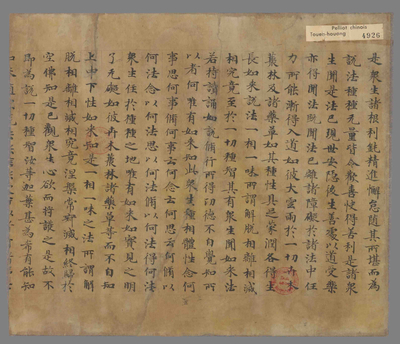 Pelliot chinois
Touen-houang
4926
是衆生諸根利鈍精進懈怠隨其所堪而為
說法種種无量皆令歡喜快得善利是諸衆
生聞是法已現世安隱後生善處以道受樂
亦得聞法既聞法已離諸障礙於諸法中任
力所能漸得入道如彼大雲雨於一切卉木
藂林及諸藥草如其種性具足蒙潤各得生
長如來說法一相一味所謂解脫相離相滅
相究竟至於一切種智其有衆生聞如來法
若持讀誦如說脩行所得功德不自覺知所
以者何唯有如來知此衆生種相體性念何
事思何事脩何事云何念云何思云何脩以
何法念以何法思以何法脩以何法得何法
衆生住於種種之地唯有如來如實見之明
了无礙如彼卉木藂林諸藥草等而不自知
上中下性如來知是一相一味之法所謂解
脫相離相滅相究竟涅槃常寂滅相終歸於
空佛知是已觀衆生心欲而將護之是故不
即為說一切種智汝等迦葉甚為希有能知